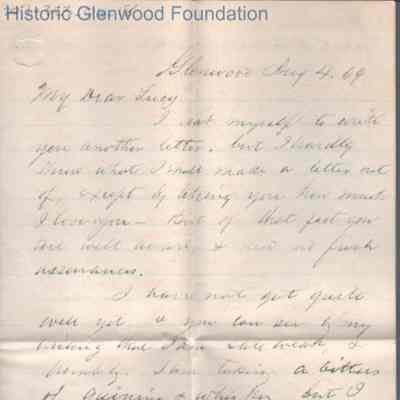 Historic Glenwood Foundation
Glenwood Aug 4. 69
My Dear Lucy
I seat myself to write
you another letter, but I hardly
know what I shall make a letter out
of, except by telling you how much
I love you - But of that fact you
are well aware, & need no fresh
assurances.
I have not got quite
well yet, & you can see by my
writing that I am weak &
trembly. I am taking a bitters
of quinine & whiskey but I